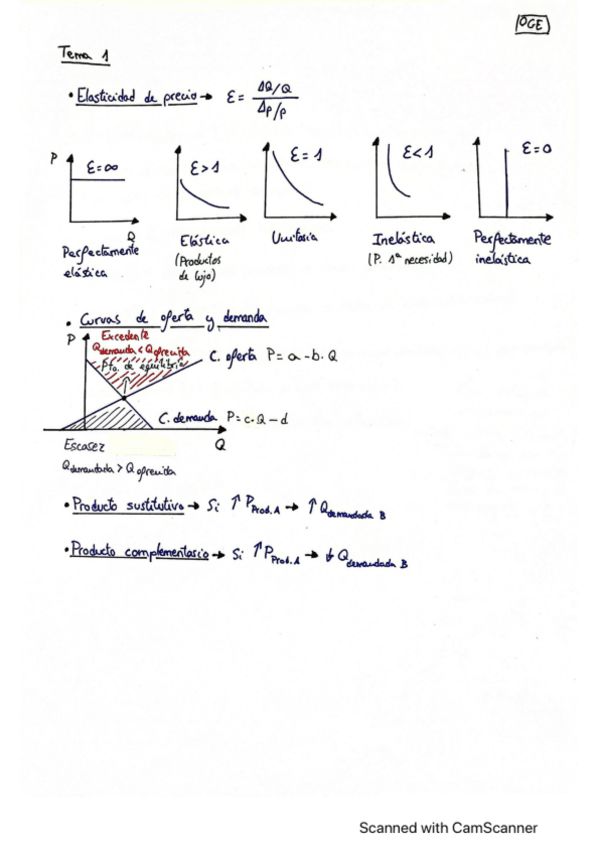 OGE
Tema 1
• Elasticidad de precio → Ɛ = ΔQ/Q
Δp/p
P Ɛ=∞ Ɛ>1 Ɛ=1 Ɛ<1 Ɛ=0
Q
Perfectamente elástica
Elástica
(Productos de lujo)
Unitaria
Inelástica
(P. 1ª necesidad)
Perfectamente inelástica
• Curvas de oferta y demanda
P Excedente
Qdemanda < Qofrecida
Pto. de equilibrio
C. oferta P= a-b·Q
C. demanda P= c·Q-d
Escasez Q
Qdemandada > Qofrecida
• Producto sustitutivo → Si ↑PProd.A → ↑Qdemandada B
• Producto complementario → Si ↑PProd.A → ↓Qdemandada B
Scanned with CamScanner